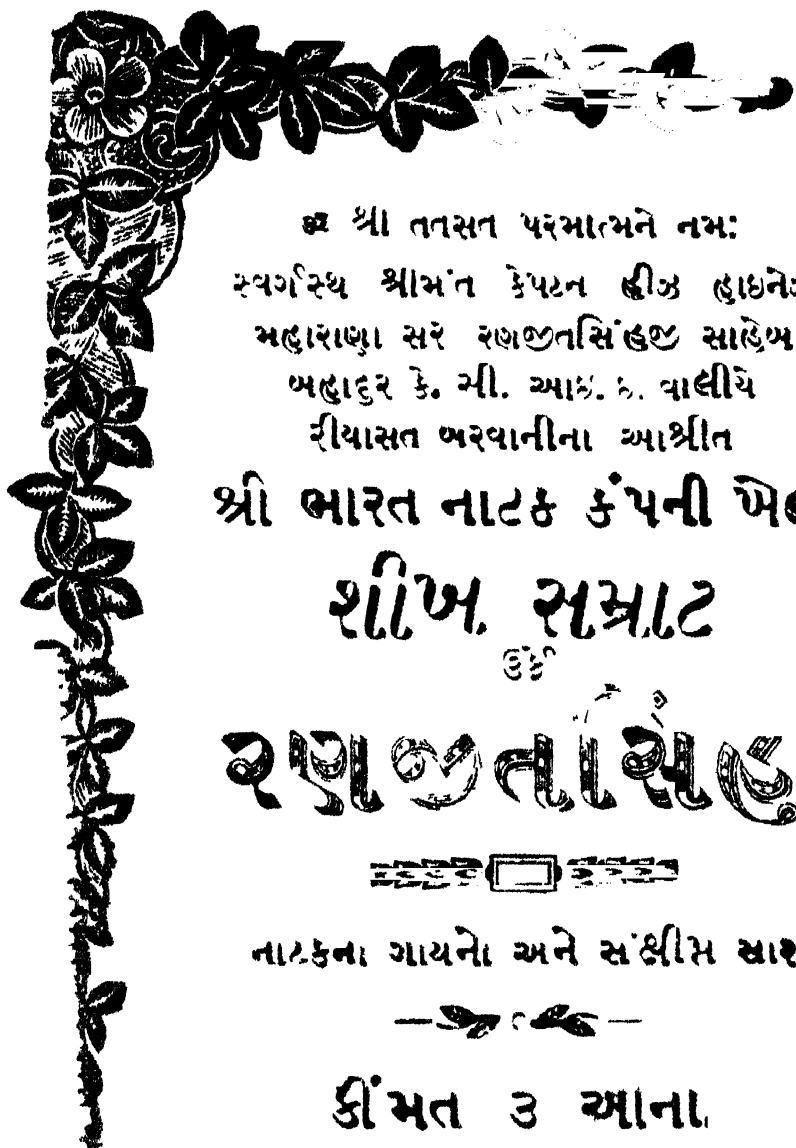 ૐ શ્રી તતસત પરમાત્મને નમઃ
સ્વર્ગસ્થ શ્રીમંત કેપટન હીઝ હાઇને
મહારાણા સર રણજીતસિંહજી સાહેબ
બહાદુર કે. સી. આઇ. ઇ. વાલીયે
રીયાસત બરવાનીના આશ્રીત
શ્રી ભારત નાટક કંપની
શીખ સમ્રાટ
ઉર્ફે
રણજીતસિંહ
નાટકના ગાયનો અને સંક્ષીપ્ત
કીંમત ૩ આના.